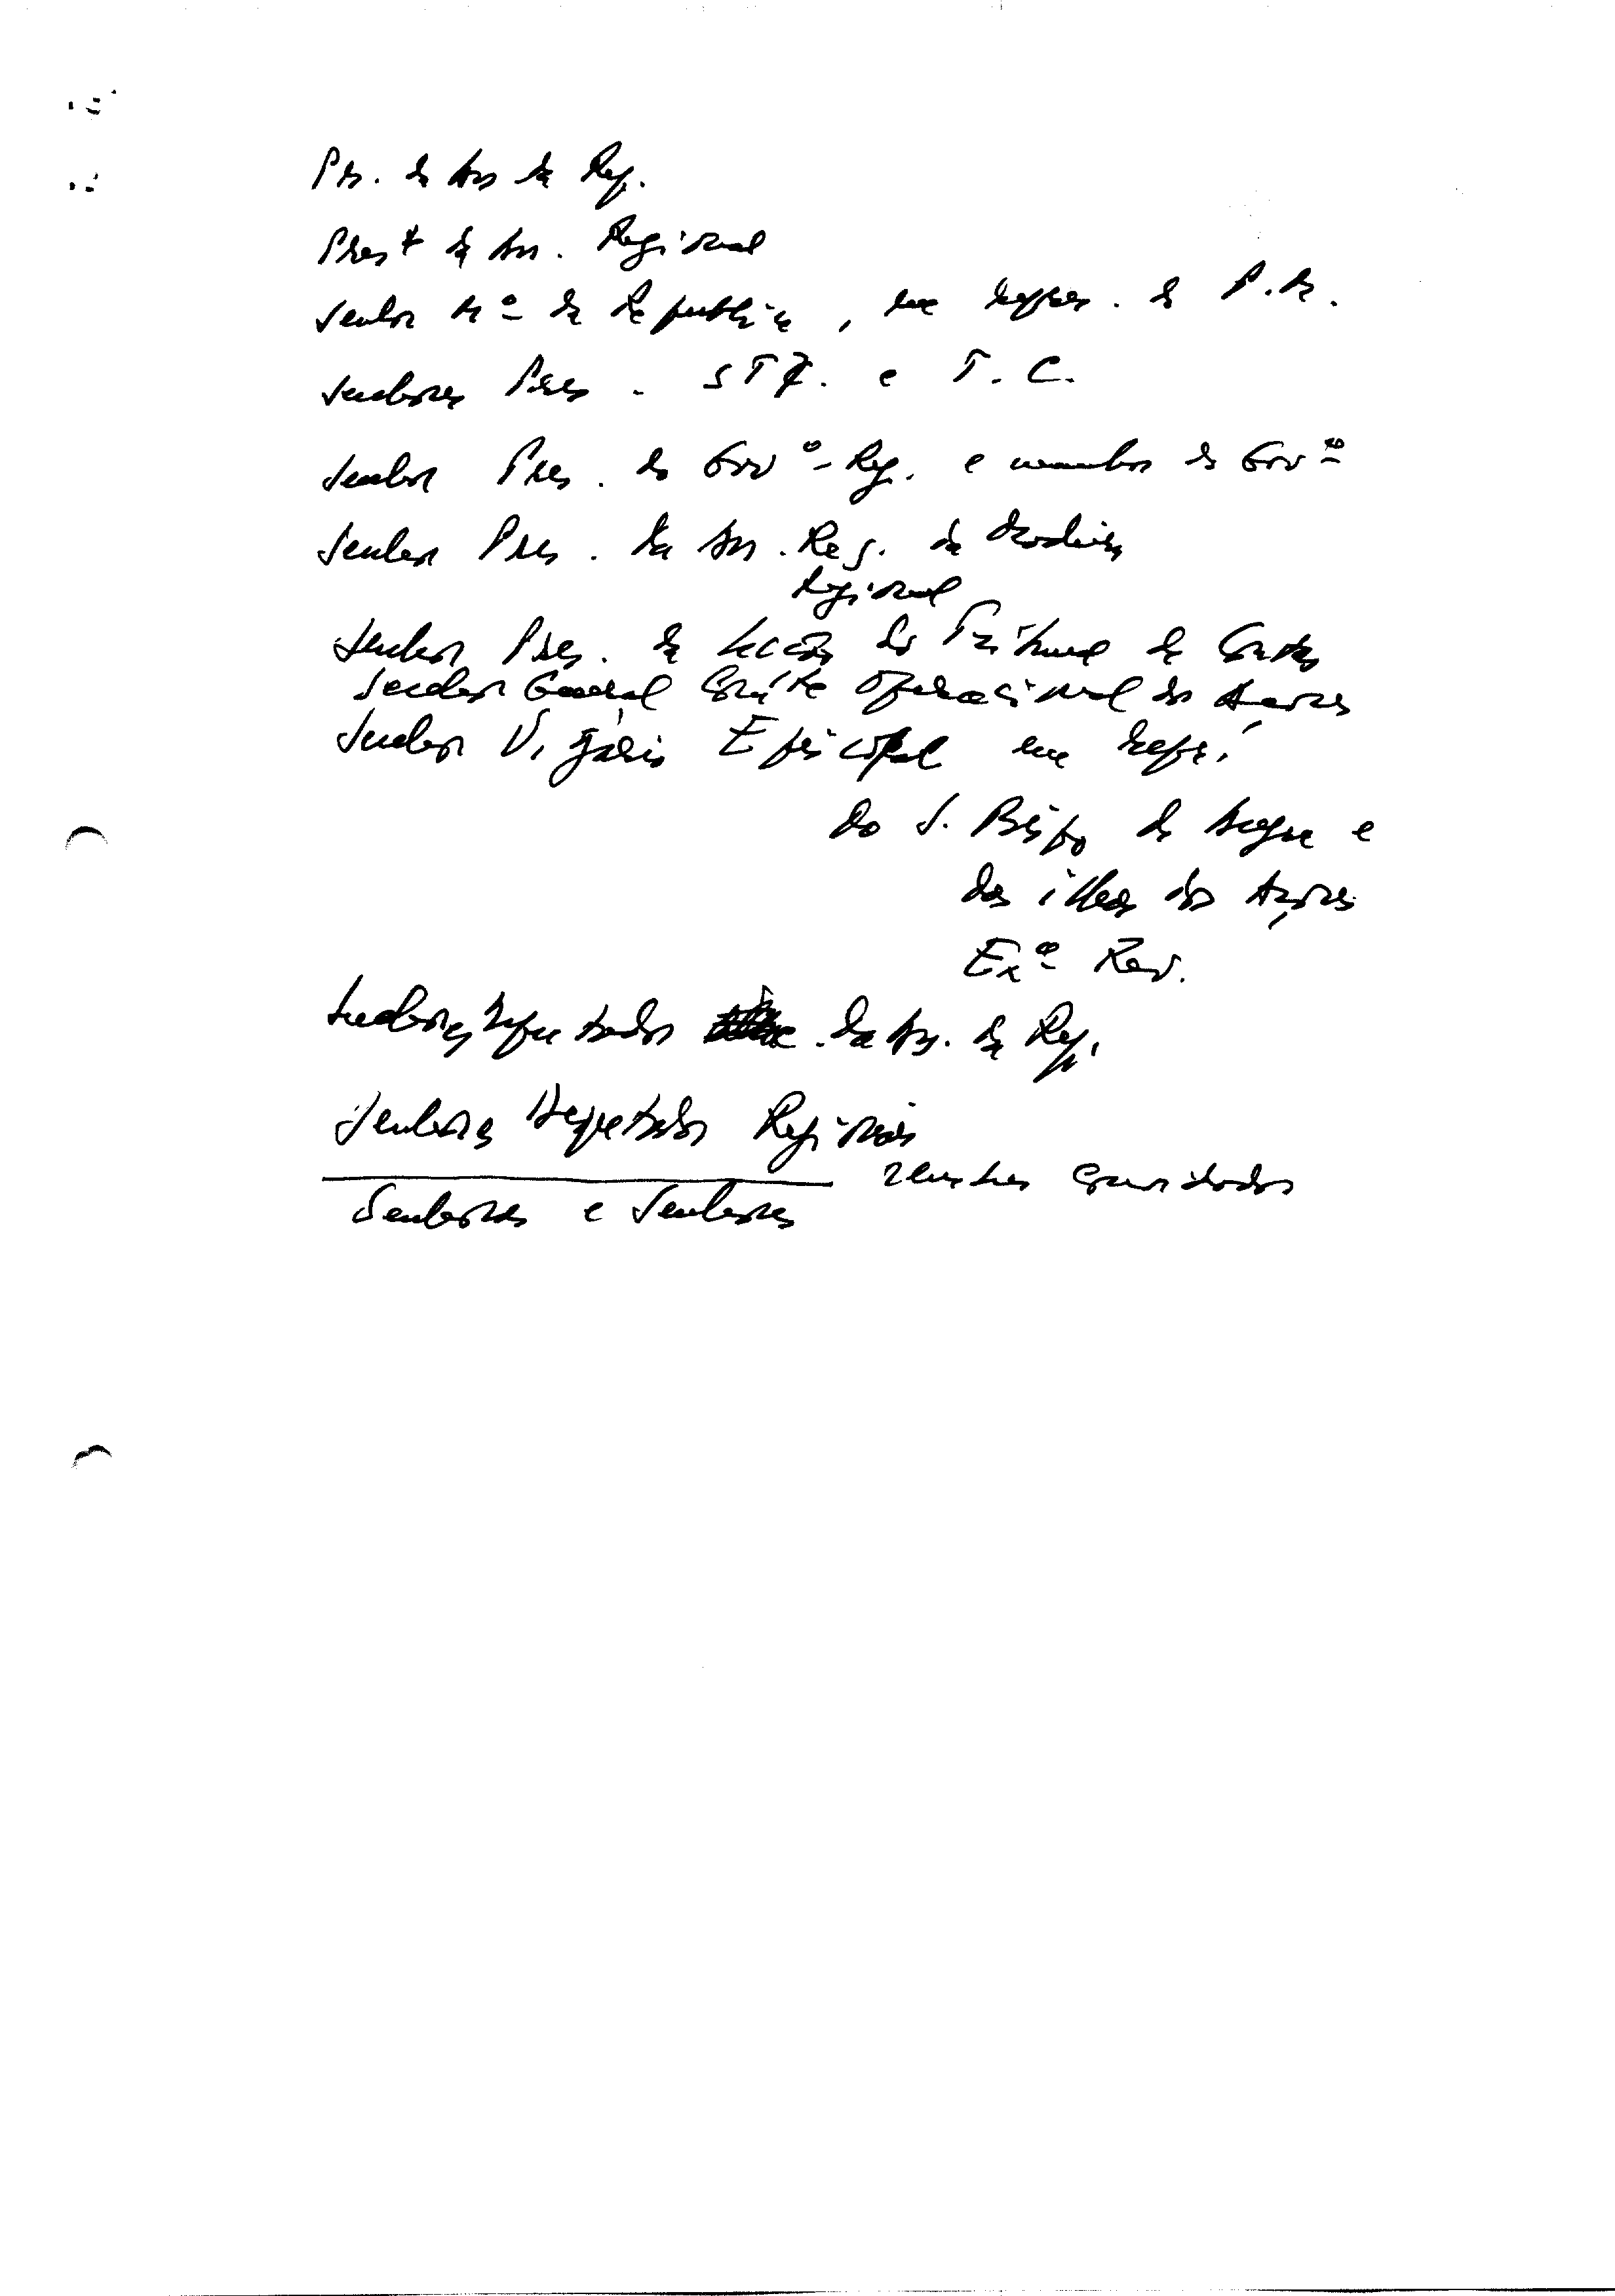 Pr. da Ass da Rep.
Prest da Ass. Regional
Senhor Mº da República, em repres. do P.R.
Senhores Pres. STJ. e T. C.
Senhor Pres. do Govº Reg. e membros do Govº
Senhor Pres. da Ass. Reg. da Madeira
Regional
Senhor Pres. da Secção do Tribunal de Contas
Senhor General Comte Operacional dos Açores
Senhor Vigário Episcopal em repr.
do S. Bispo de Angra e
das ilhas dos Açores
Exº Rev.
Senhores Deputados da Ass. da Rep.
Senhores Deputados Regionais
ilustres convidados
Senhoras e Senhores